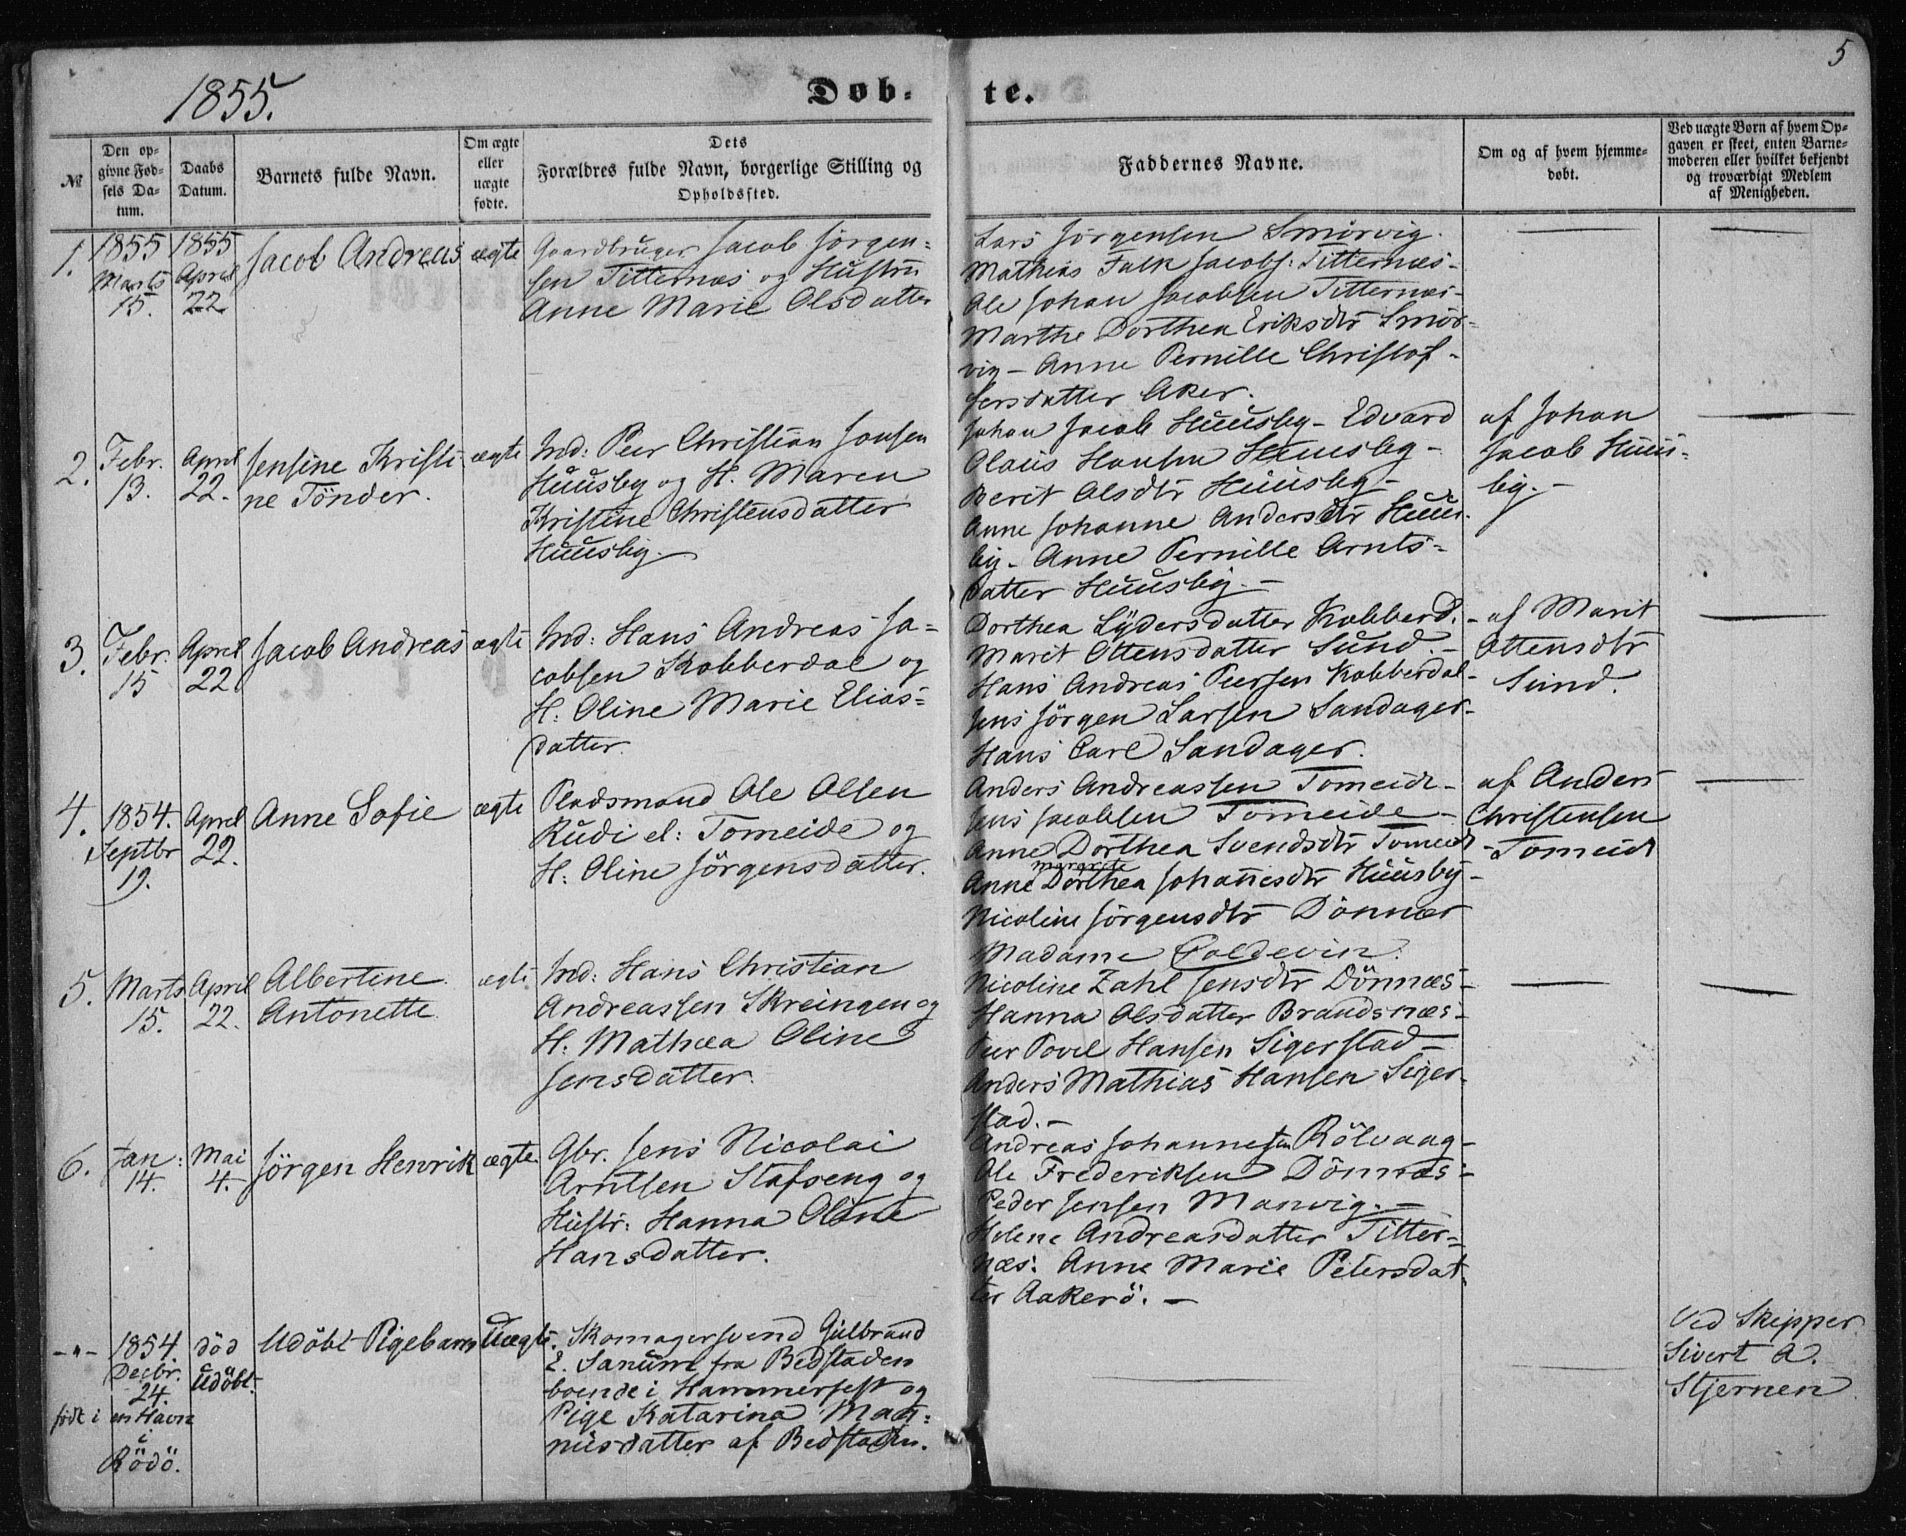 1855.
Døb-
te.
5
№
Den op-
givne Fød-
sels Da-
tum.
Daabs
Datum.
Barnets fulde Navn.
Om ægte
eller
uægte
fødte.
Dets
Forældres fulde Navn, borgerlige Stilling og
Opholdssted.
Faddernes Navne.
Om og af hvem hjemme-
døbt.
Ved uægte Børn af hvem Op-
gaven er skeet, enten Barne-
moderen eller hvilket bekjendt
og troværdigt Medlem
af Menigheden.
1.
1855
Marts
15.
1855
April
22.
Jacob Andreas
ægte
Gaardbruger Jacob Jörgen=
sen Titternæs og Hustru
Anne Marie Olsdatter
Lars Jörgensen Smörvig.
Mathias Falk Jacobs: Titternæs-
Ole Johan Jacobsen Titternæs-
Marthe Dorthea Eriksdtr Smör-
vig - Anne Pernille Christof-
fersdatter Aker.
2.
Febr.
13.
April
22.
Jensine Kristi
ne Tönder.
ægte
Ind: Peer Christian Jonsen
Huusby og H. Maren
Kristine Christensdatter
Huusby.
Johan Jacob Huusby - Edvard
Olaus Hansen Huusby -
Berit Olsdtr Huusby -
Anne Johanne Andersdtr Huus-
by - Anne Pernille Arnts-
datter Huusby. -
af Johan
Jacob Huus-
by. -
3.
Febr:
15
April
22
Jacob Andreas
ægte
Ind: Hans Andreas Ja=
cobsen Kobberdal og
H: Oline Marie Elias-
datter
Dorthea Lydersdatter Kobberd. -
Marit Ottensdatter Sund. -
Hans Andreas Peersen Kobberdal-
Jens Jörgen Larsen Sandager-
Hans Carl Sandager.
af Marit
Ottensdtr
Sund.
4.
1854.
Septbr
19.
April
22.
Anne Sofie
ægte
Pladsmand Ole Olsen
Rudi el: Tomeide og
H: Oline Jörgensdatter.
Anders Andreassen Tomeide -
Jens Jacobsen Tomeide -
Anne Dorthea Svendsdtr Tomeid -
Margrete
Anne Dorthea Johannesdtr Huusby -
Nicoline Jörgensdtr Dönnæs
Madame Coldevin.
af Anders
Christensen
Tomeid
5.
Marts
15.
April
22.
Albertine
Antonette
ægte
Ind: Hans Christian
Andreassen Skreingen og
H. Mathæa Oline
Jensdatter.
Nicoline Zahl Jensdtr Dönnæs -
Hanna Olsdatter Brandsnæs -
Peer Povel Hansen Sigerstad -
Anders Mathias Hansen Siger-
stad. -
6.
Jan:
14.
Mai
4.
Jörgen Henrik
ægte.
Gbr. Jens Nicolai
Arntsen Stafseng og
Hustr: Hanna Oline
Hansdatter.
Andreas Johannesen Rölvaag -
Ole Frederiksen Dönnæs -
Peder Jensen Manvig. -
Helene Andreasdatter Titter-
næs. Anne Marie Petersdat-
ter Aakerö. -
-"-
1854
Decbr.
24
födt i en Havn
i
Rödö.
död
Udöbt.
Udöbt Pigebarn
Uægte.
Skomagersvend Gulbrand
E. Sanum fra Bedstaden
boende i Hammerfest og
Pige Katarina Mag-
nusdatter af Bedstaden.
Ved Skipper
Sivert A.
Stjernen